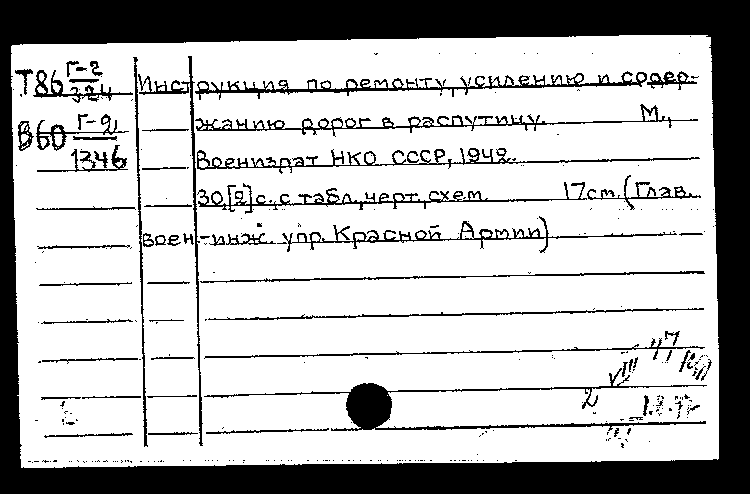 Т86 Г-2/324 Инструкция по ремонту, усилению и содер-
В60 Г-2/1346 жанию дорог в распутицу. М.,
Воениздат НКО СССР, 1942.
30,[2] с., с табл., черт., схем. 17 см. (Глав.
воен.-инж. упр. Красной Армии)
2 VIII 47